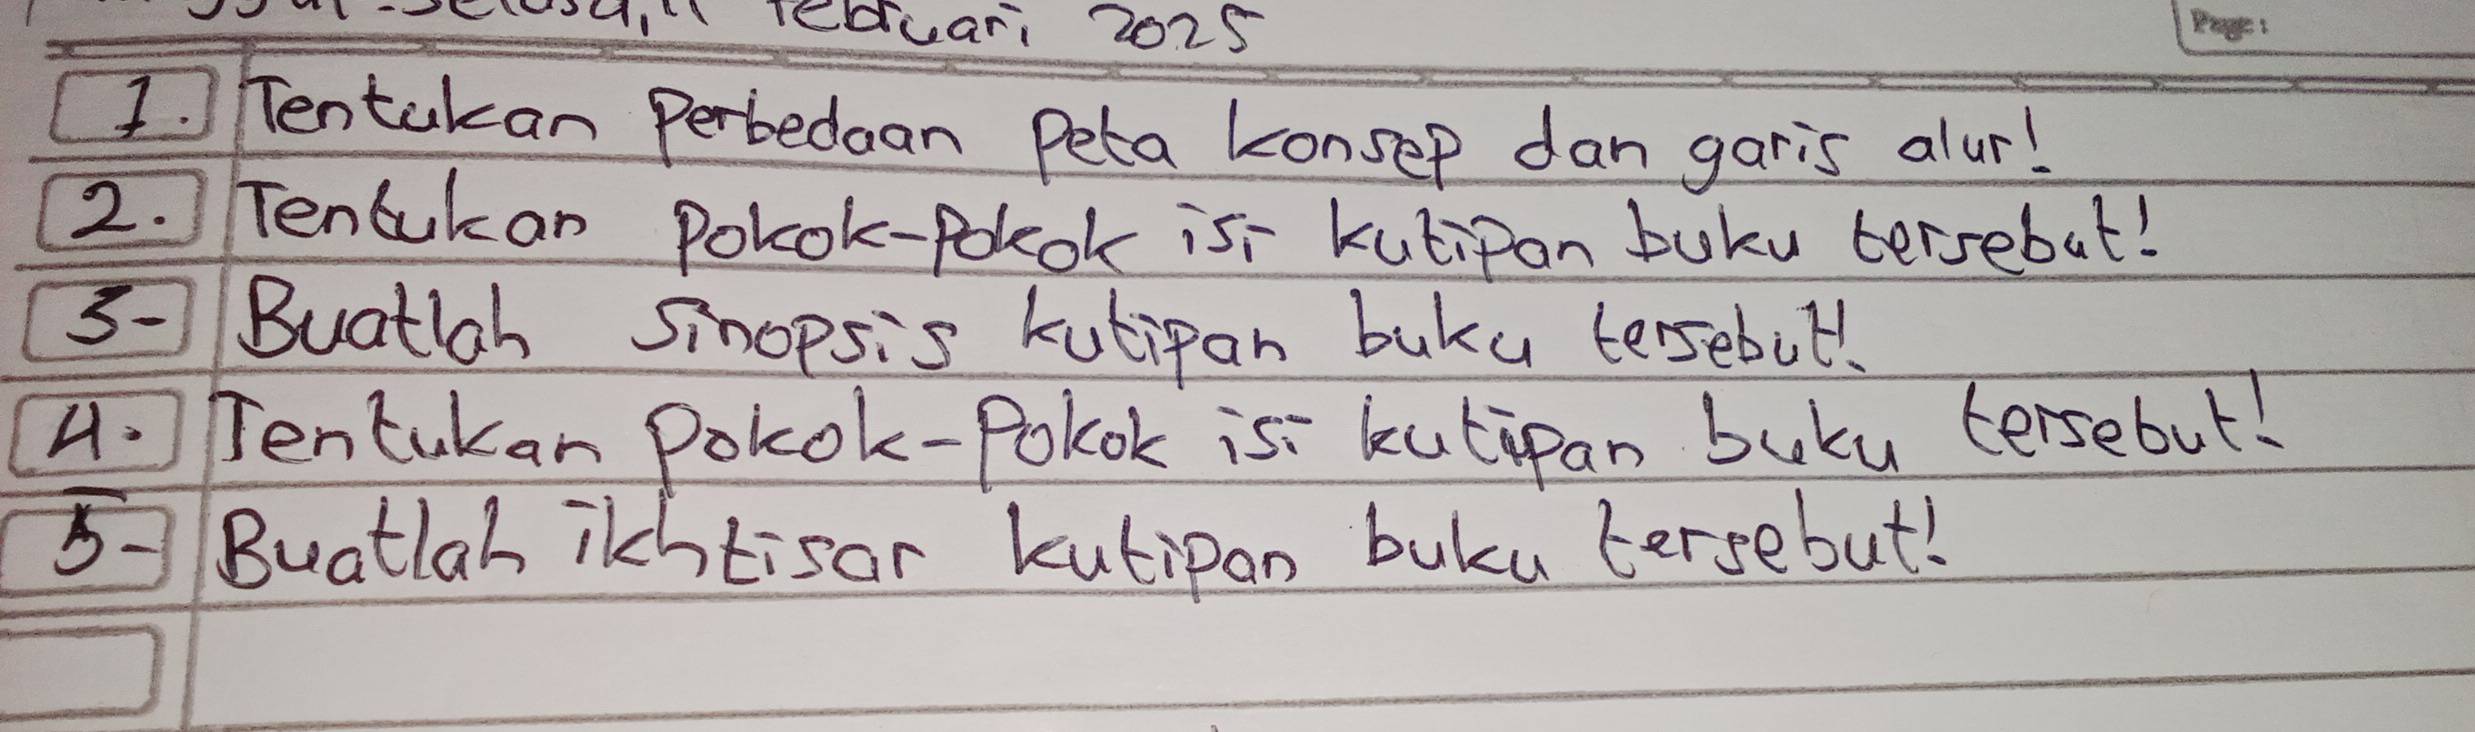 Selasa, 11 Februari 2025
Page:
1. Tentukan Perbedaan Peta konsep dan garis alur!
2. Tentukan Pokok-Pokok isi kutipan buku tersebut!
3- Buatlah Sinopsis kutipan buku tersebut!
4. Tentukan Pokok-Pokok isi kutipan buku tersebut!
5- Buatlah ikhtisar kutipan buku tersebut!